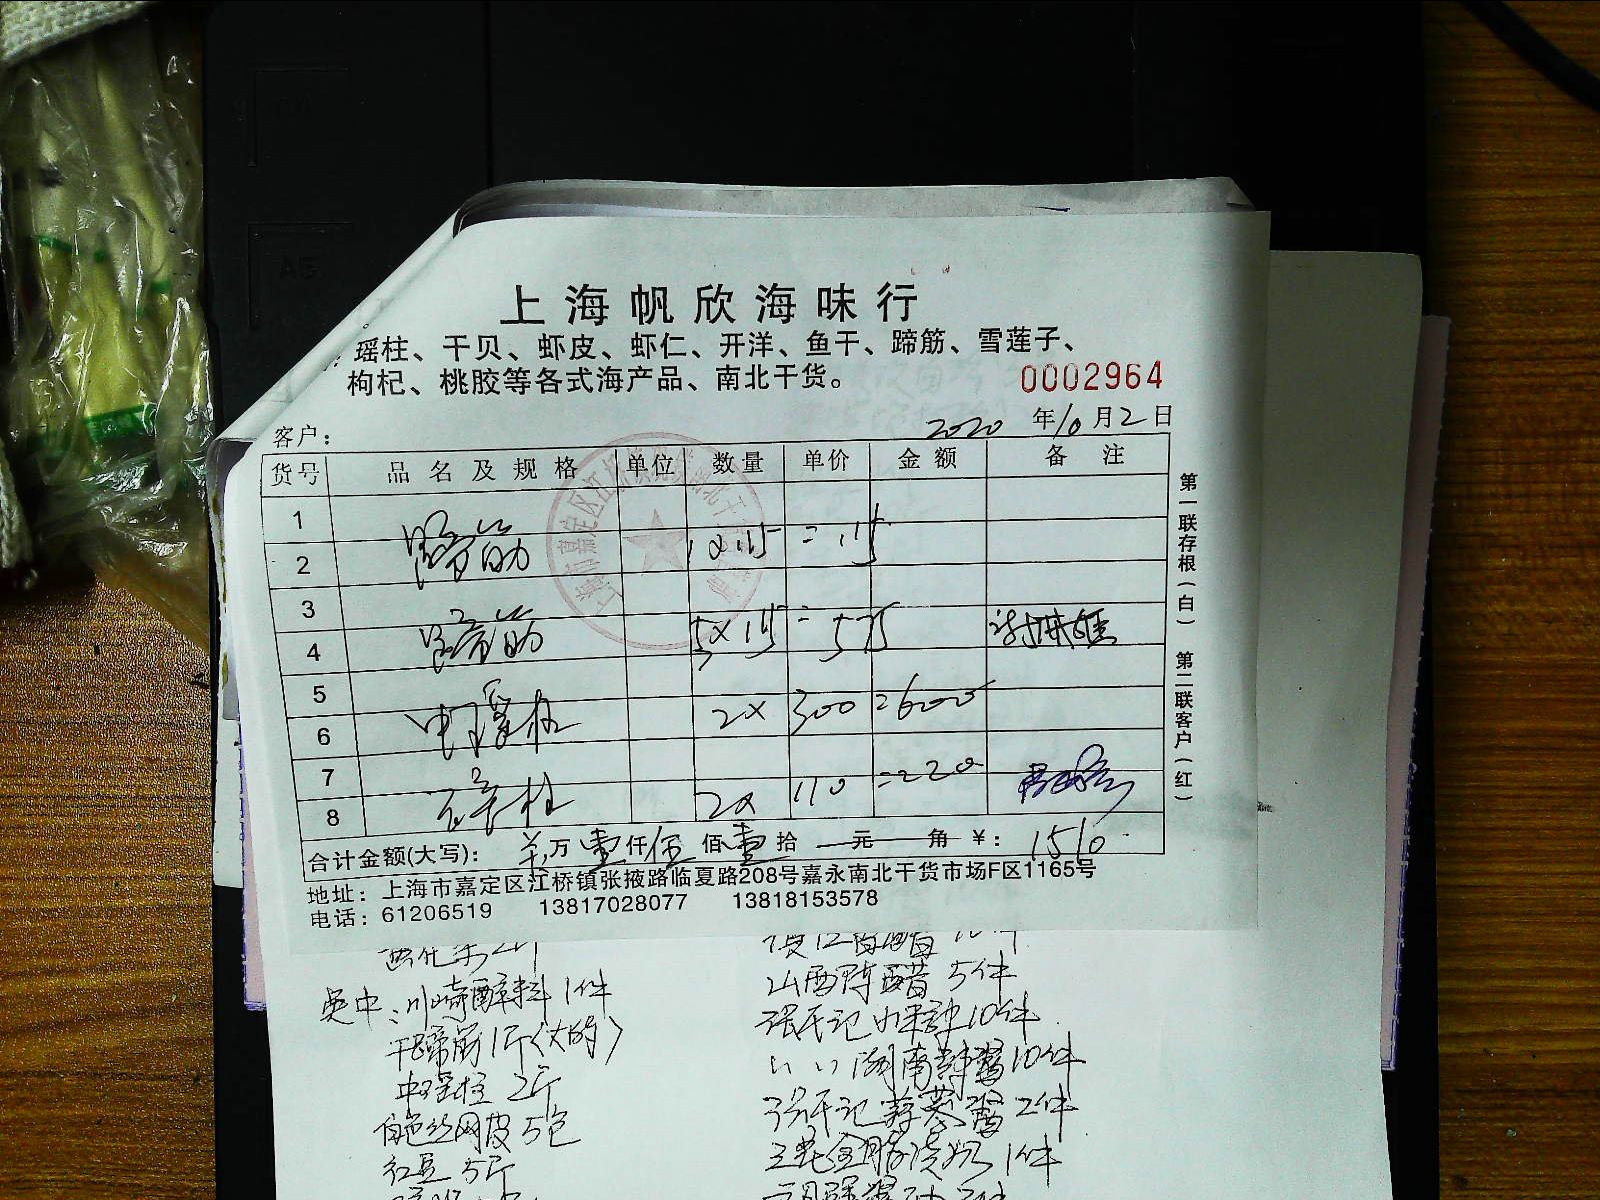 上海帆欣海味行
瑶柱、干贝、虾皮、虾仁、开洋、鱼干、蹄筋、雪莲子、
枸杞、桃胶等各式海产品、南北干货。
0002964
2020年10月2日
客户：
货号 品名及规格 单位 数量 单价 金额 备注
1
2 蹄筋 1×115=115
3
4 蹄筋 5×115=575
5
6 中瑶柱 2×300=600
7
8 2×110=220
合计金额(大写)： 万壹仟伍佰壹拾元角￥：1510
地址：上海市嘉定区江桥镇张掖路临夏路208号嘉永南北干货市场F区1165号
电话：61206519 13817028077 13818153578
第一联存根（白） 第二联客户（红）
川崎醉料 1件
干蹄筋1斤（大的）
中瑶柱 2斤
白色丝网皮 5包
红豆 5斤
山西陈醋 5件
10件
湖南辣酱10件
2件
1件